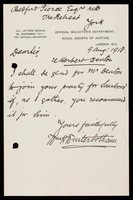 Tradescant
York
ALL LETTERS SHOULD
BE ADDRESSED TO
THE OFFICIAL SOLICITOR
OFFICIAL SOLICITOR'S DEPARTMENT,
ROYAL COURTS OF JUSTICE,
LONDON, W.C.
9 Aug. 1918.
Dear Sir
re Herbert Denton
I shall be glad for Mr Denton
to join your party for
if, as I gather, you recommend
it for him.
Yours faithfully